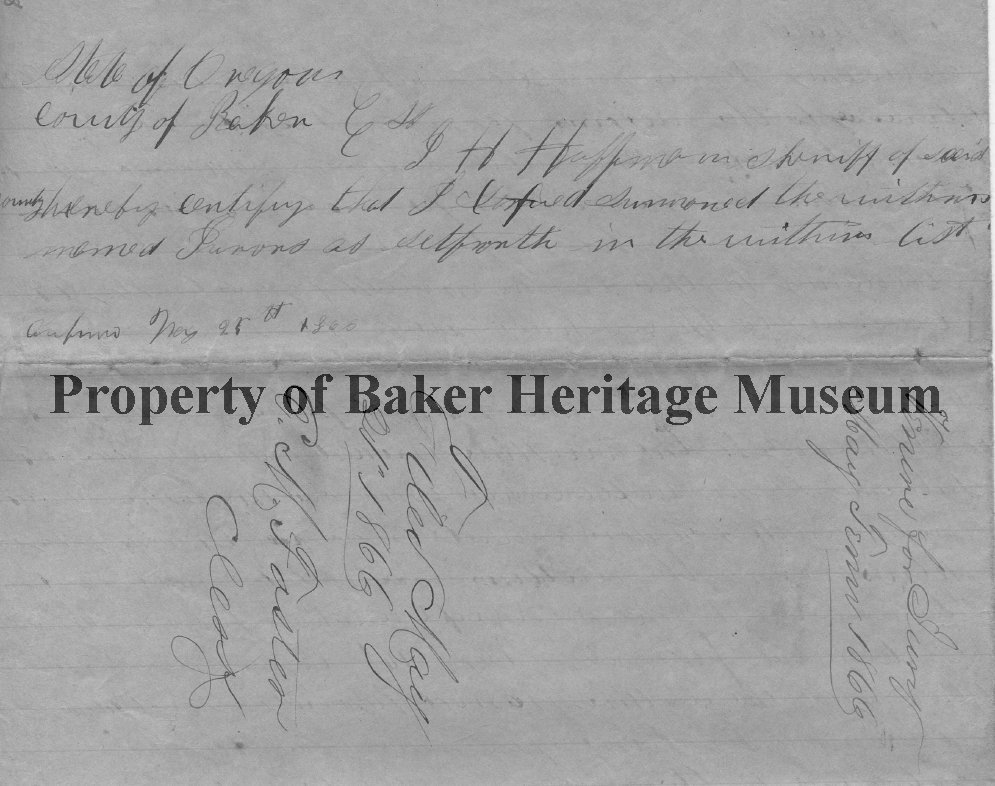 State of Oregon
County of Baker SS
I H Huffman sheriff of said
County hereby certify that I summoned the within
named Jurors as setforth in the within list
May 25th 1866
Property of Baker Heritage Museum
Venire for Jury
May Term 1866
Filed May
25 1866
C. M. Foster
Clerk